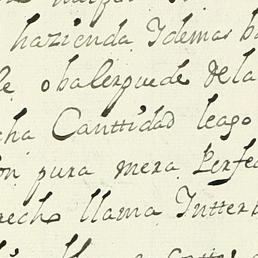 hazienda Idemas b
le obalerpuede dela
cha Canttidad leago
on pura mera Perfec
rech llama Intter